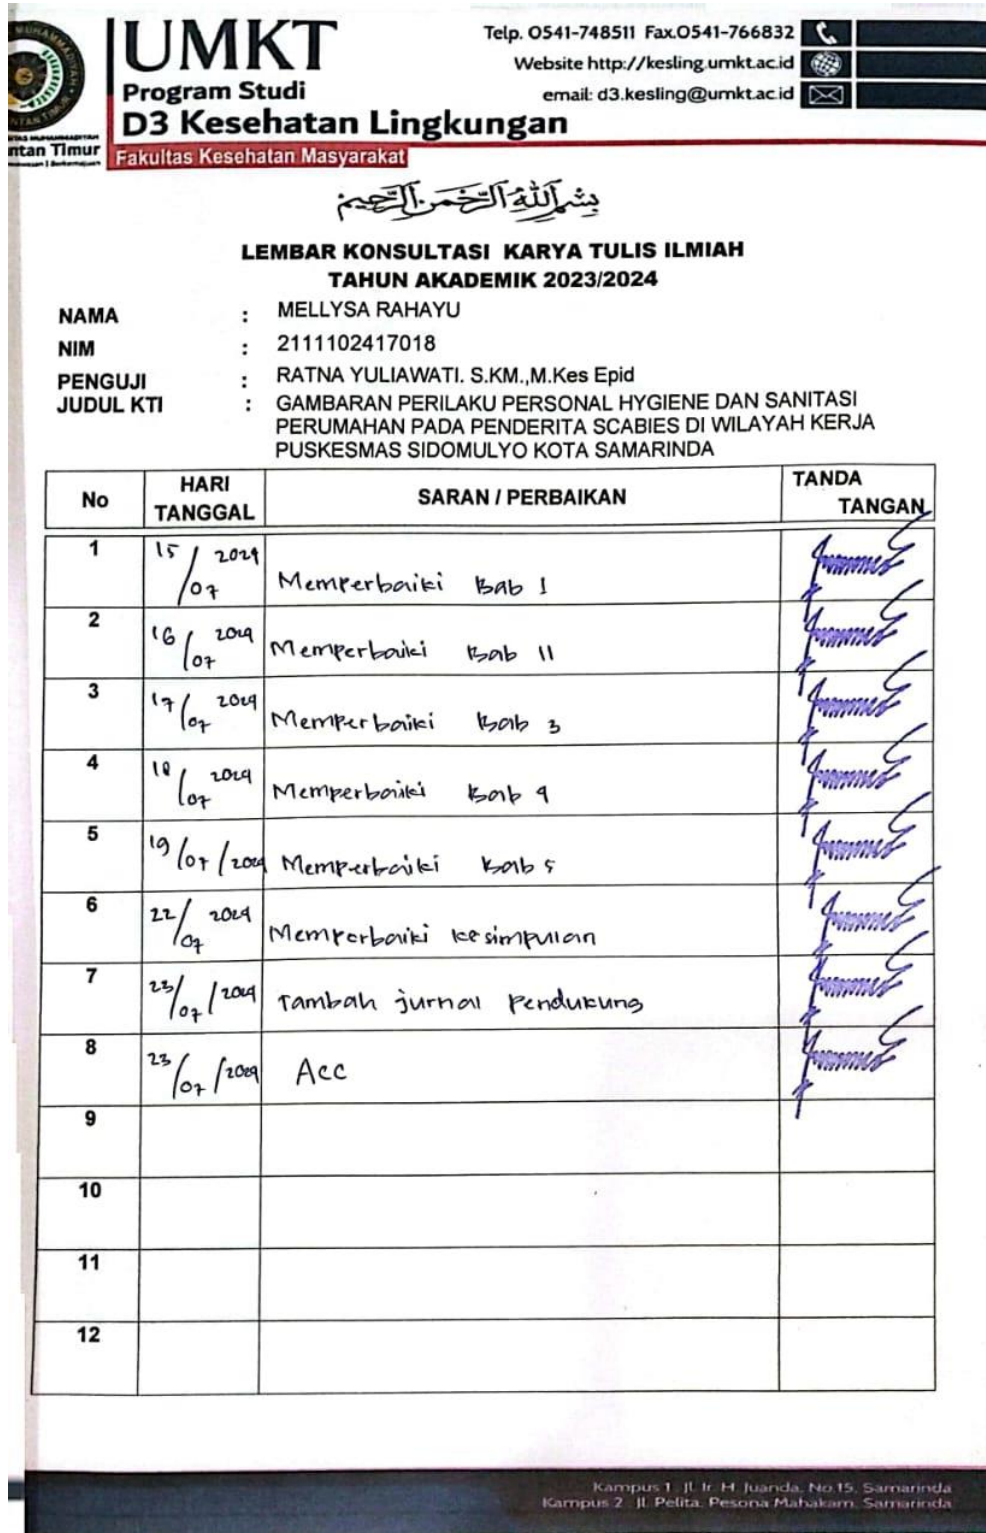 UMKT
Program Studi
D3 Kesehatan Lingkungan
Fakultas Kesehatan Masyarakat
Telp. 0541-748511 Fax.0541-766832
Website http://kesling.umkt.ac.id
email: d3.kesling@umkt.ac.id
ntan Timur
بسم الله الرحمن الرحيم
LEMBAR KONSULTASI KARYA TULIS ILMIAH
TAHUN AKADEMIK 2023/2024
NAMA : MELLYSA RAHAYU
NIM : 2111102417018
PENGUJI : RATNA YULIAWATI. S.KM.,M.Kes Epid
JUDUL KTI : GAMBARAN PERILAKU PERSONAL HYGIENE DAN SANITASI
PERUMAHAN PADA PENDERITA SCABIES DI WILAYAH KERJA
PUSKESMAS SIDOMULYO KOTA SAMARINDA
No HARI TANGGAL SARAN / PERBAIKAN TANDA TANGAN
1 15/07 2024 Memperbaiki Bab 1
2 16/07 2024 Memperbaiki Bab 11
3 17/07 2024 Memperbaiki Bab 3
4 18/07 2024 Memperbaiki Bab 4
5 19/07/2024 Memperbaiki Bab 5
6 22/07 2024 Memperbaiki kesimpulan
7 23/07/2024 Tambah jurnal Pendukung
8 23/07/2024 Acc
9
10
11
12
Kampus 1 Jl. Ir. H. Juanda, No.15, Samarinda
Kampus 2 Jl. Pelita, Pesona Mahakam, Samarinda